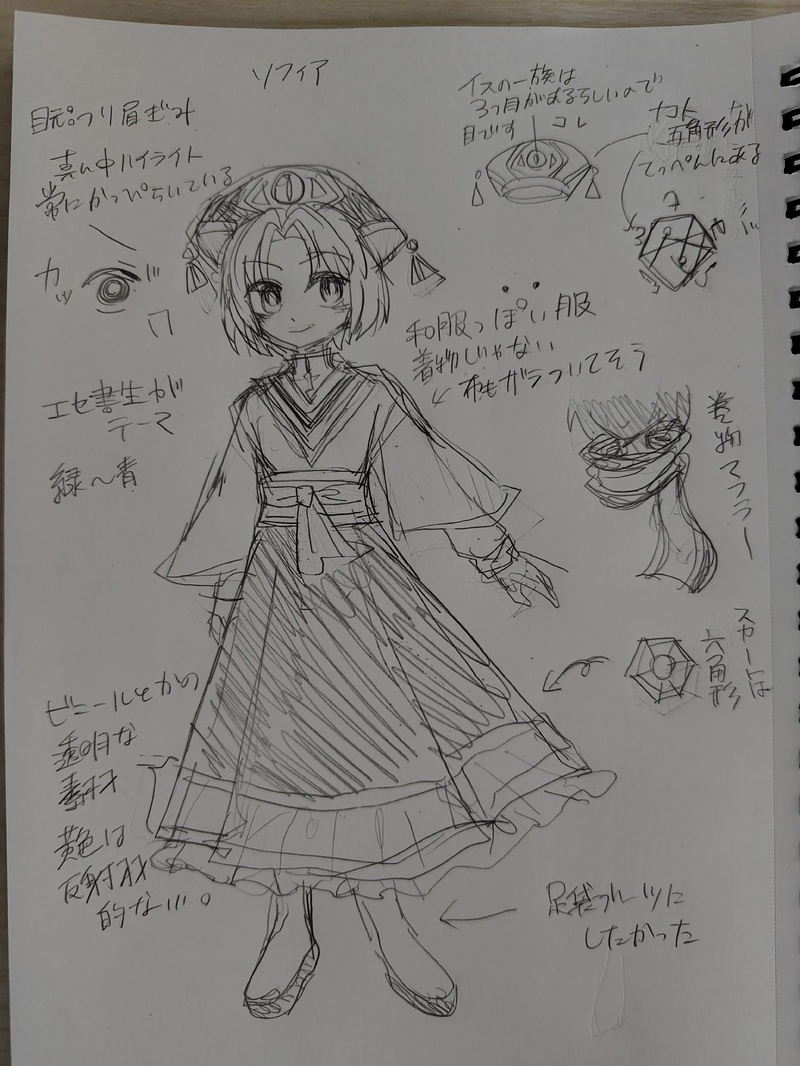 ソフィア
目元つり眉ぎみ
真ん中ハイライト
常にかっぴらいている
カッ
エセ書生が
テーマ
緑〜青
イスの一族は
3つ目があるらしいので
目です
コレ
ナコト
五角形が
てっぺんにある
和服っぽい服
着物じゃない
ガラついてそう
巻物マフラー
スカートは
六角形
ビニールとかの
透明な
素材
黄色は
反射材
的な…。
足袋ブーツに
したかった